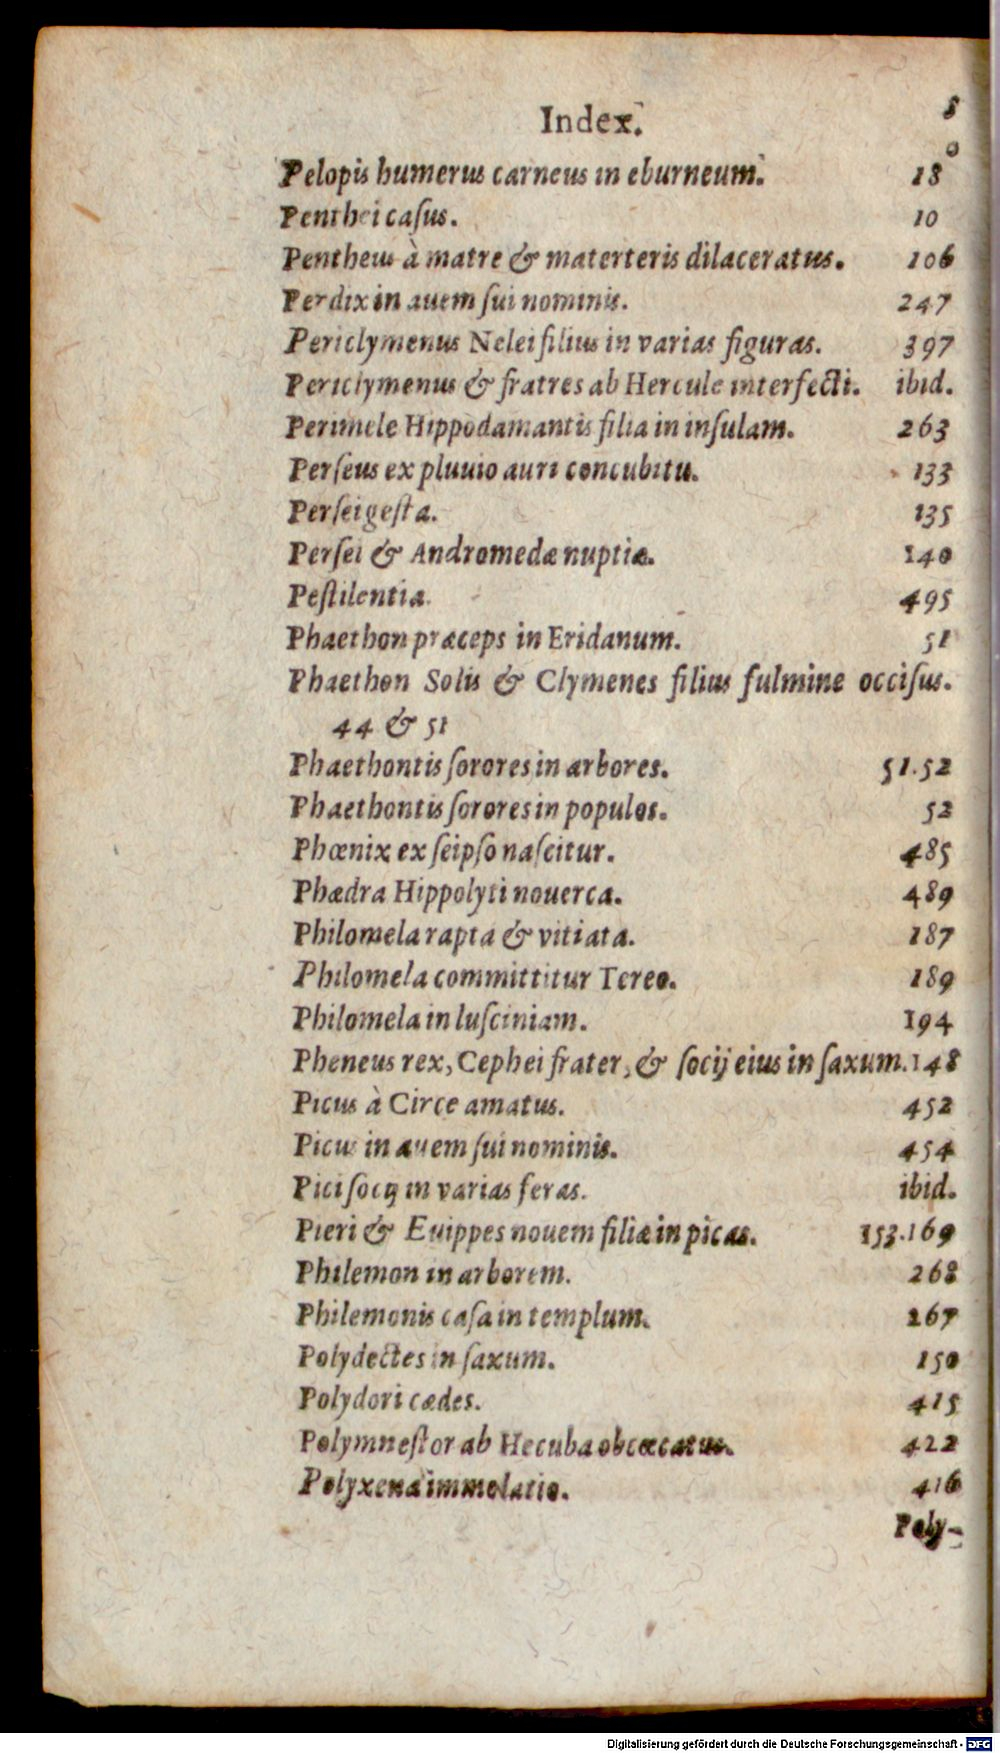 Index.
Pelopis humerus carneus in eburneum. 18
Penthei caſus. 10
Pentheus à matre & materteris dilaceratus. 106
Perdix in auem ſui nominis. 247
Periclymenus Nelei filius in varias figuras. 397
Periclymenus & fratres ab Hercule interfecti. ibid.
Perimele Hippodamantis filia in inſulam. 263
Perſeus ex pluuio auri concubitu. 133
Perſei geſta. 135
Perſei & Andromedæ nuptiæ. 140
Peſtilentia. 495
Phaethon præceps in Eridanum. 51
Phaethon Solis & Clymenes filius fulmine occiſus.
44 & 51
Phaethontis ſorores in arbores. 51.52
Phaethontis ſorores in populos. 52
Phœnix ex ſeipſo naſcitur. 485
Phædra Hippolyti nouerca. 489
Philomela rapta & vitiata. 187
Philomela committitur Tereo. 189
Philomela in luſciniam. 194
Pheneus rex, Cephei frater, & ſocij eius in ſaxum. 148
Picus à Circe amatus. 452
Picus in auem ſui nominis. 454
Pici ſocij in varias feras. ibid.
Pieri & Euippes nouem filiæ in picas. 153.169
Philemon in arborem. 268
Philemonis caſa in templum. 267
Polydectes in ſaxum. 150
Polydori cædes. 415
Polymneſtor ab Hecuba obcæcatus. 422
Polyxenæ immolatio. 416
Poly-
Digitalisierung gefördert durch die Deutsche Forschungsgemeinschaft - DFG